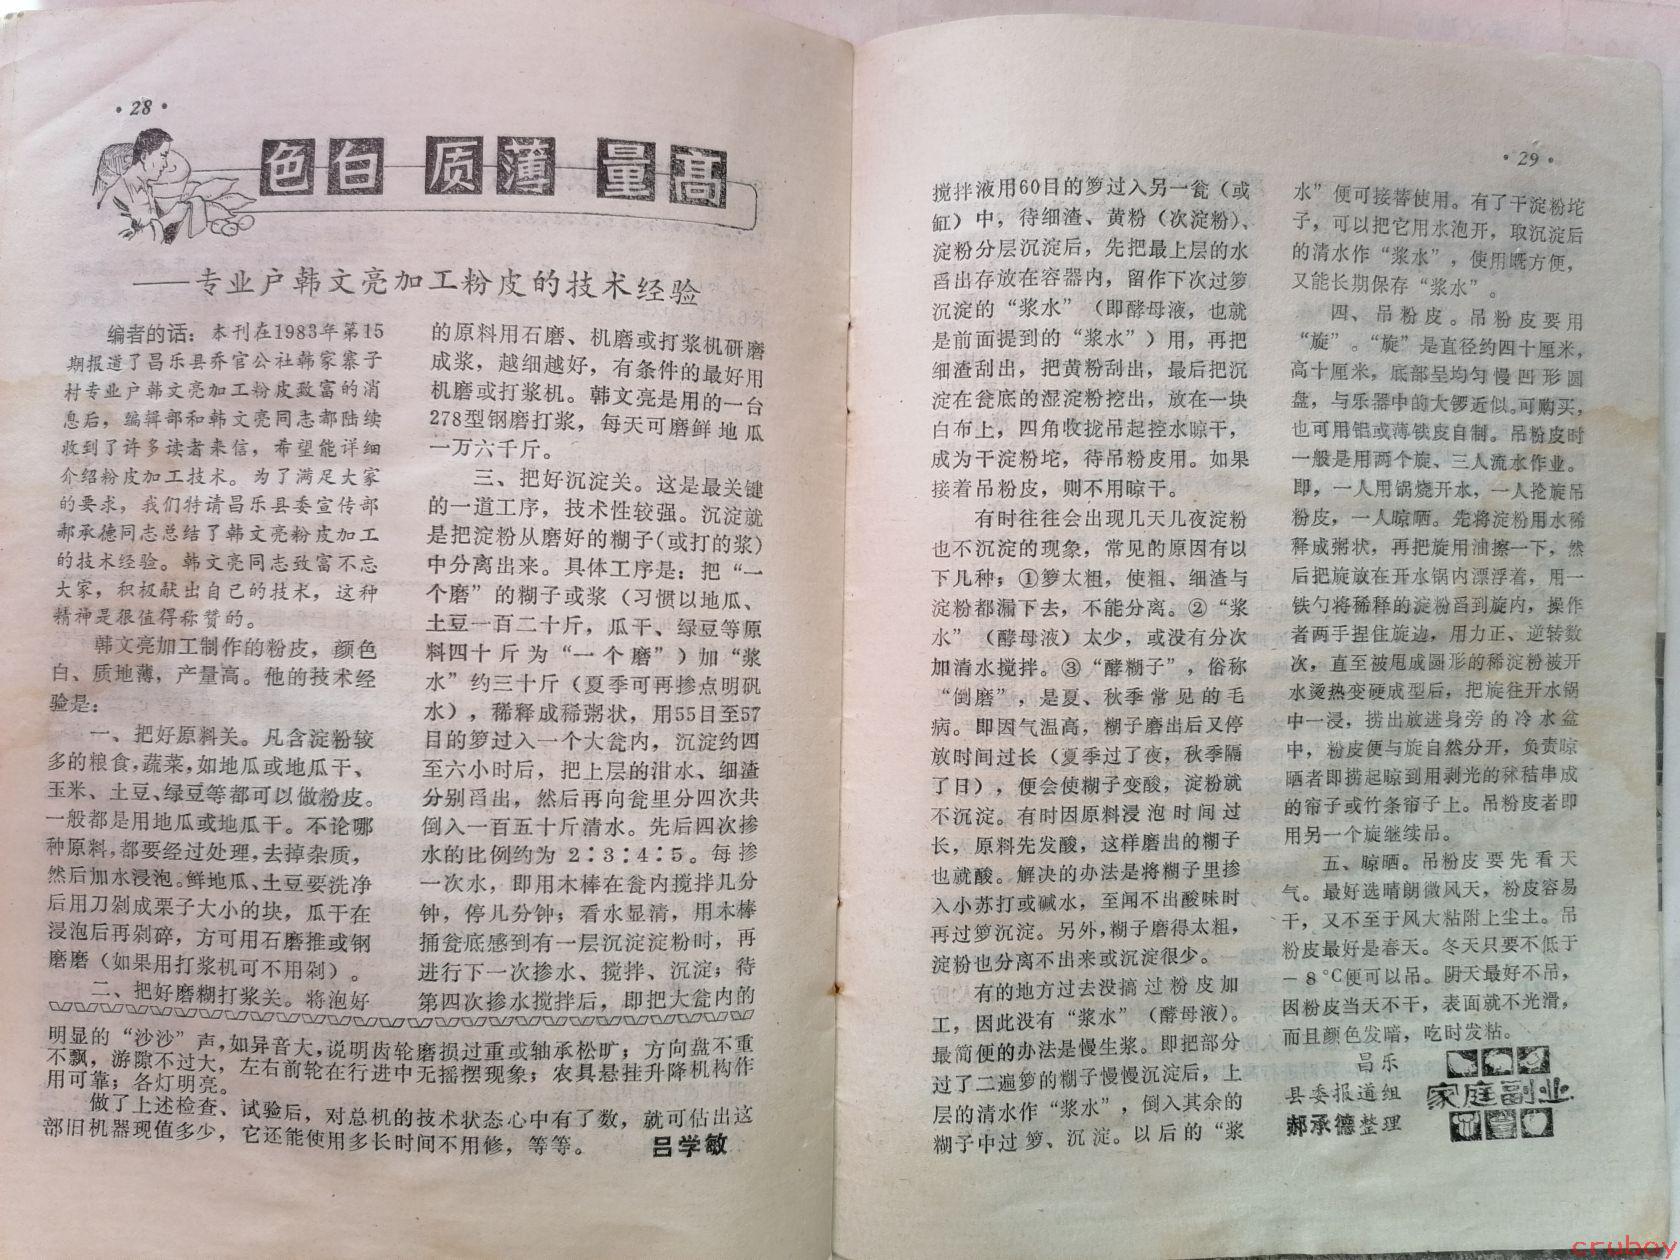 ·28·
色白 质薄 量高
——专业户韩文亮加工粉皮的技术经验
编者的话：本刊在1983年第15
期报道了昌乐县乔官公社韩家寨子
村专业户韩文亮加工粉皮致富的消
息后，编辑部和韩文亮同志都陆续
收到了许多读者来信，希望能详细
介绍粉皮加工技术。为了满足大家
的要求，我们特请昌乐县委宣传部
郝承德同志总结了韩文亮粉皮加工
的技术经验。韩文亮同志致富不忘
大家，积极献出自己的技术，这种
精神是很值得称赞的。
韩文亮加工制作的粉皮，颜色
白、质地薄，产量高。他的技术经
验是：
一、把好原料关。凡含淀粉较
多的粮食，蔬菜，如地瓜或地瓜干、
玉米、土豆、绿豆等都可以做粉皮。
一般都是用地瓜或地瓜干。不论哪
种原料，都要经过处理，去掉杂质，
然后加水浸泡。鲜地瓜、土豆要洗净
后用刀剁成栗子大小的块，瓜干在
浸泡后再剁碎，方可用石磨推或钢
磨磨（如果用打浆机可不用剁）。
二、把好磨糊打浆关。将泡好
的原料用石磨、机磨或打浆机研磨
成浆，越细越好，有条件的最好用
机磨或打浆机。韩文亮是用的一台
278型钢磨打浆，每天可磨鲜地瓜
一万六千斤。
三、把好沉淀关。这是最关键
的一道工序，技术性较强。沉淀就
是把淀粉从磨好的糊子（或打的浆）
中分离出来。具体工序是：把“一
个磨”的糊子或浆（习惯以地瓜、
土豆一百二十斤，瓜干、绿豆等原
料四十斤为“一个磨”）加“浆
水”约三十斤（夏季可再掺点明矾
水），稀释成稀粥状，用55目至57
目的箩过入一个大瓮内，沉淀约四
至六小时后，把上层的泔水、细渣
分别舀出，然后再向瓮里分四次共
倒入一百五十斤清水。先后四次掺
水的比例约为 2∶3∶4∶5。每掺
一次水，即用木棒在瓮内搅拌几分
钟，停几分钟；看水显清，用木棒
捅瓮底感到有一层沉淀淀粉时，再
进行下一次掺水、搅拌、沉淀；待
第四次掺水搅拌后，即把大瓮内的
明显的“沙沙”声，如异音大，说明齿轮磨损过重或轴承松旷；方向盘不重
不飘，游隙不过大，左右前轮在行进中无摇摆现象；农具悬挂升降机构作
用可靠；各灯明亮。
做了上述检查、试验后，对总机的技术状态心中有了数，就可估出这
部旧机器现值多少，它还能使用多长时间不用修，等等。
吕学敏
·29·
搅拌液用60目的箩过入另一瓮（或
缸）中，待细渣、黄粉（次淀粉）、
淀粉分层沉淀后，先把最上层的水
舀出存放在容器内，留作下次过箩
沉淀的“浆水”（即酵母液，也就
是前面提到的“浆水”）用，再把
细渣刮出，把黄粉刮出，最后把沉
淀在瓮底的湿淀粉挖出，放在一块
白布上，四角收拢吊起控水晾干，
成为干淀粉坨，待吊粉皮用。如果
接着吊粉皮，则不用晾干。
有时往往会出现几天几夜淀粉
也不沉淀的现象，常见的原因有以
下几种；①箩太粗，使粗、细渣与
淀粉都漏下去，不能分离。②“浆
水”（酵母液）太少，或没有分次
加清水搅拌。③“酵糊子”，俗称
“倒磨”，是夏、秋季常见的毛
病。即因气温高，糊子磨出后又停
放时间过长（夏季过了夜，秋季隔
了日），便会使糊子变酸，淀粉就
不沉淀。有时因原料浸泡时间过
长，原料先发酸，这样磨出的糊子
也就酸。解决的办法是将糊子里掺
入小苏打或碱水，至闻不出酸味时
再过箩沉淀。另外，糊子磨得太粗，
淀粉也分离不出来或沉淀很少。
有的地方过去没搞过粉皮加
工，因此没有“浆水”（酵母液）。
最简便的办法是慢生浆。即把部分
过了二遍箩的糊子慢慢沉淀后，上
层的清水作“浆水”，倒入其余的
糊子中过箩、沉淀。以后的“浆
水”便可接替使用。有了干淀粉坨
子，可以把它用水泡开，取沉淀后
的清水作“浆水”，使用既方便，
又能长期保存“浆水”。
四、吊粉皮。吊粉皮要用
“旋”。“旋”是直径约四十厘米，
高十厘米，底部呈均匀慢凹形圆
盘，与乐器中的大锣近似。可购买，
也可用铝或薄铁皮自制。吊粉皮时
一般是用两个旋、三人流水作业。
即，一人用锅烧开水，一人抡旋吊
粉皮，一人晾晒。先将淀粉用水稀
释成粥状，再把旋用油擦一下，然
后把旋放在开水锅内漂浮着，用一
铁勺将稀释的淀粉舀到旋内，操作
者两手捏住旋边，用力正、逆转数
次，直至被甩成圆形的稀淀粉被开
水烫热变硬成型后，把旋往开水锅
中一浸，捞出放进身旁的冷水盆
中，粉皮便与旋自然分开，负责晾
晒者即捞起晾到用剥光的秫秸串成
的帘子或竹条帘子上。吊粉皮者即
用另一个旋继续吊。
五、晾晒。吊粉皮要先看天
气。最好选晴朗微风天，粉皮容易
干，又不至于风大粘附上尘土。吊
粉皮最好是春天。冬天只要不低于
－8℃便可以吊。阴天最好不吊，
因粉皮当天不干，表面就不光滑，
而且颜色发暗，吃时发粘。
昌乐
县委报道组
郝承德整理
家庭副业
cruboy